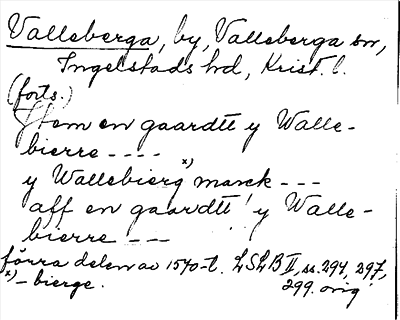 Valleberga, by, Valleberga sn,
Ingelstads hd, Krist. l.
(forts.)
Jtem en gaardtt y Walle-
bierre ----
y Wallebierg x) marck ---
aff en gaardtt y Walle-
bierre ---
förra delen av 1570-t. LSLB II, ss. 294, 297,
x) - bierge. 299. orig.